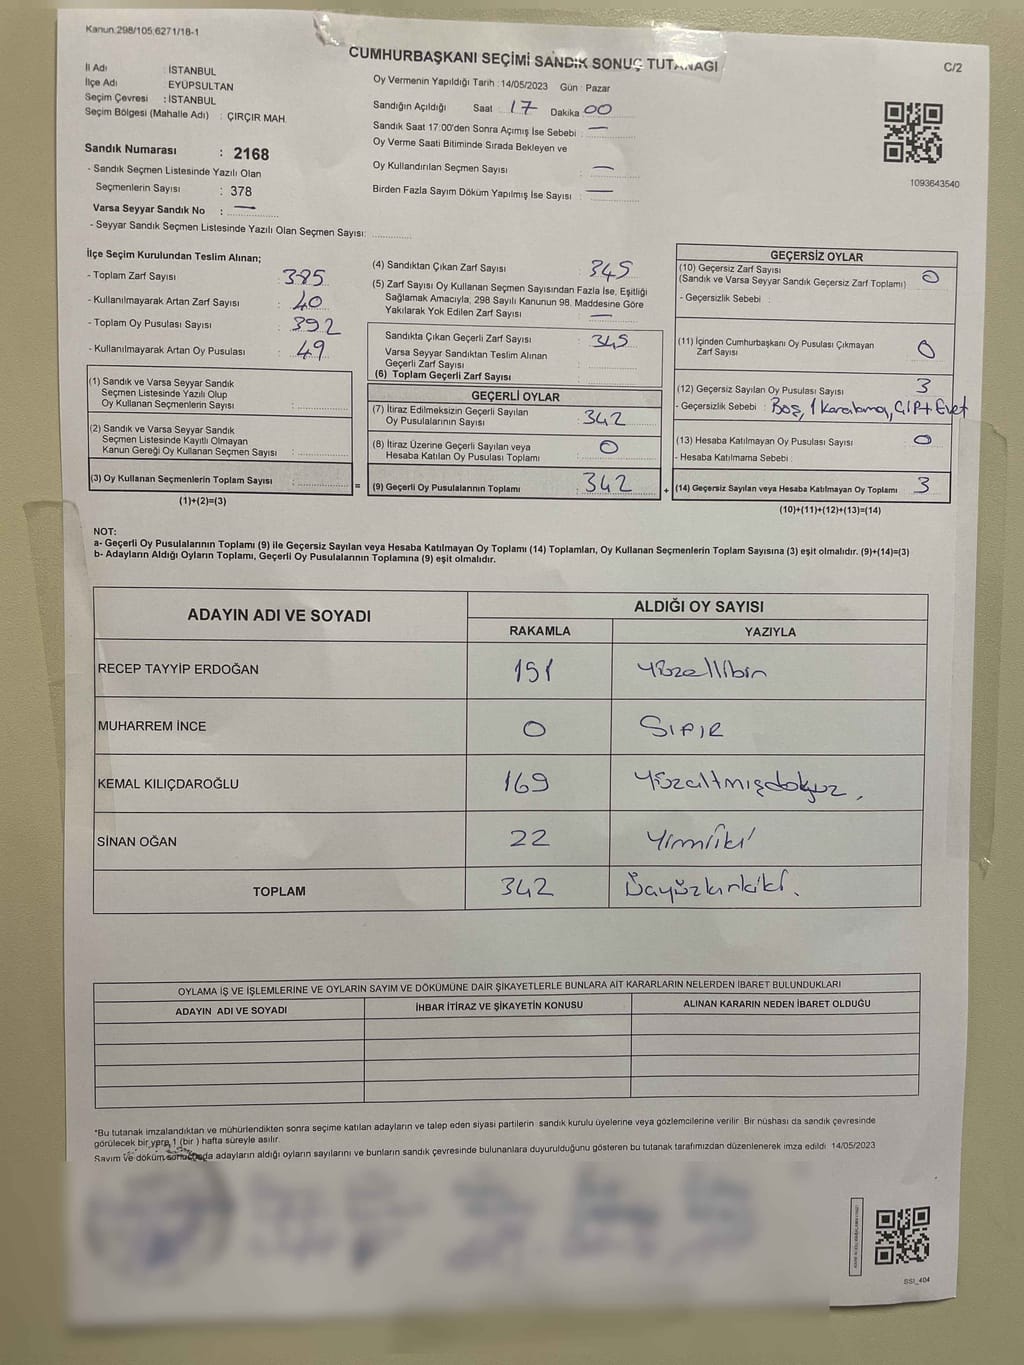 Kanun.298/105,6271/18-1
CUMHURBAŞKANI SEÇİMİ SANDIK SONUÇ TUTANAĞI
C/2
İl Adı : İSTANBUL
İlçe Adı : EYÜPSULTAN
Seçim Çevresi : İSTANBUL
Seçim Bölgesi (Mahalle Adı) : ÇIRÇIR MAH.
Oy Vermenin Yapıldığı Tarih : 14/05/2023 Gün : Pazar
Sandığın Açıldığı Saat : 17 Dakika 00
Sandık Saat 17:00'den Sonra Açımış İse Sebebi : —
Oy Verme Saati Bitiminde Sırada Bekleyen ve
Oy Kullandırılan Seçmen Sayısı : —
Birden Fazla Sayım Döküm Yapılmış İse Sayısı : —
1093643540
Sandık Numarası : 2168
- Sandık Seçmen Listesinde Yazılı Olan
Seçmenlerin Sayısı : 378
Varsa Seyyar Sandık No : —
- Seyyar Sandık Seçmen Listesinde Yazılı Olan Seçmen Sayısı:
İlçe Seçim Kurulundan Teslim Alınan;
- Toplam Zarf Sayısı : 385
- Kullanılmayarak Artan Zarf Sayısı : 40
- Toplam Oy Pusulası Sayısı : 392
- Kullanılmayarak Artan Oy Pusulası : 49
(1) Sandık ve Varsa Seyyar Sandık
Seçmen Listesinde Yazılı Olup
Oy Kullanan Seçmenlerin Sayısı :
(2) Sandık ve Varsa Seyyar Sandık
Seçmen Listesinde Kayıtlı Olmayan
Kanun Gereği Oy Kullanan Seçmen Sayısı :
(3) Oy Kullanan Seçmenlerin Toplam Sayısı : =
(1)+(2)=(3)
(4) Sandıktan Çıkan Zarf Sayısı : 345
(5) Zarf Sayısı Oy Kullanan Seçmen Sayısından Fazla İse, Eşitliği
Sağlamak Amacıyla, 298 Sayılı Kanunun 98. Maddesine Göre
Yakılarak Yok Edilen Zarf Sayısı : —
Sandıkta Çıkan Geçerli Zarf Sayısı : 345
Varsa Seyyar Sandıktan Teslim Alınan
Geçerli Zarf Sayısı :
(6) Toplam Geçerli Zarf Sayısı :
GEÇERLİ OYLAR
(7) İtiraz Edilmeksizin Geçerli Sayılan
Oy Pusulalarının Sayısı : 342
(8) İtiraz Üzerine Geçerli Sayılan veya
Hesaba Katılan Oy Pusulası Toplamı : 0
(9) Geçerli Oy Pusulalarının Toplamı : 342 +
GEÇERSİZ OYLAR
(10) Geçersiz Zarf Sayısı : 0
(Sandık ve Varsa Seyyar Sandık Geçersiz Zarf Toplamı)
- Geçersizlik Sebebi :
(11) İçinden Cumhurbaşkanı Oy Pusulası Çıkmayan
Zarf Sayısı : 0
(12) Geçersiz Sayılan Oy Pusulası Sayısı : 3
- Geçersizlik Sebebi : Boş, 1 Karalama, Çift Evet
(13) Hesaba Katılmayan Oy Pusulası Sayısı : 0
- Hesaba Katılmama Sebebi :
(14) Geçersiz Sayılan veya Hesaba Katılmayan Oy Toplamı : 3
(10)+(11)+(12)+(13)=(14)
NOT:
a- Geçerli Oy Pusulalarının Toplamı (9) ile Geçersiz Sayılan veya Hesaba Katılmayan Oy Toplamı (14) Toplamları, Oy Kullanan Seçmenlerin Toplam Sayısına (3) eşit olmalıdır. (9)+(14)=(3)
b- Adayların Aldığı Oyların Toplamı, Geçerli Oy Pusulalarının Toplamına (9) eşit olmalıdır.
ADAYIN ADI VE SOYADI
ALDIĞI OY SAYISI
RAKAMLA YAZIYLA
RECEP TAYYİP ERDOĞAN 151 Yüzellibir
MUHARREM İNCE 0 SIFIR
KEMAL KILIÇDAROĞLU 169 Yüzaltmışdokuz.
SİNAN OĞAN 22 Yirmiiki
TOPLAM 342 Üçyüzkırkiki.
OYLAMA İŞ VE İŞLEMLERİNE VE OYLARIN SAYIM VE DÖKÜMÜNE DAİR ŞİKAYETLERLE BUNLARA AİT KARARLARIN NELERDEN İBARET BULUNDUKLARI
ADAYIN ADI VE SOYADI İHBAR İTİRAZ VE ŞİKAYETİN KONUSU ALINAN KARARIN NEDEN İBARET OLDUĞU
*Bu tutanak imzalandıktan ve mühürlendikten sonra seçime katılan adayların ve talep eden siyasi partilerin sandık kurulu üyelerine veya gözlemcilerine verilir Bir nüshası da sandık çevresinde
görülecek bir yere 1 (bir ) hafta süreyle asılır.
Sayım ve döküm sonucunda adayların aldığı oyların sayılarını ve bunların sandık çevresinde bulunanlara duyurulduğunu gösteren bu tutanak tarafımızdan düzenlenerek imza edildi 14/05/2023
SSI_404